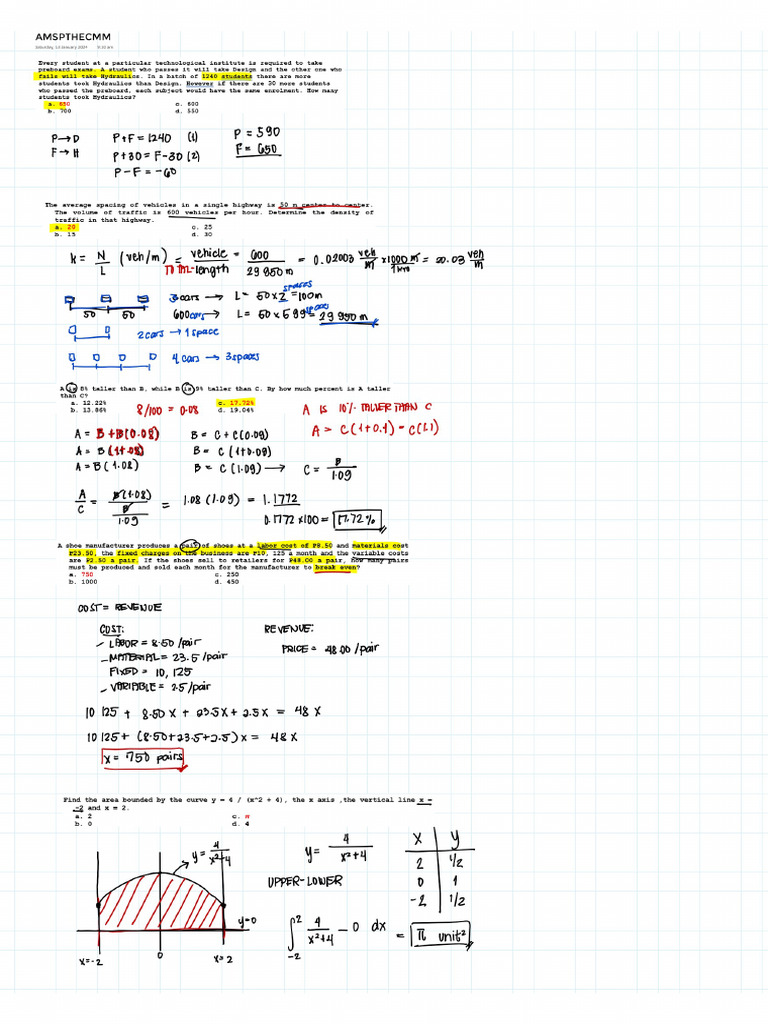 AMSPTHECMM
Saturday, 13 January 2024 9:10 am
Every student at a particular technological institute is required to take
preboard exams. A student who passes it will take Design and the other one who
fails will take Hydraulics. In a batch of 1240 students there are more
students took Hydraulics than Design. However if there are 30 more students
who passed the preboard, each subject would have the same enrolment. How many
students took Hydraulics?
a. 650 c. 600
b. 700 d. 550
P → D P + F = 1240 (1) P = 590
F → H P + 30 = F - 30 (2) F = 650
P - F = -60
The average spacing of vehicles in a single highway is 50 m center to center.
The volume of traffic is 600 vehicles per hour. Determine the density of
traffic in that highway.
a. 20 c. 25
b. 15 d. 30
k = N/L (veh/m) = vehicle/TOTAL-length = 600/29 950 m = 0.02003 veh/m × 1000 m/1 km = 20.03 veh/m
50 50
3 cars → L = 50 × 2 spaces = 100m
600 cars → L = 50 × 599 spaces = 29 950 m
2 cars → 1 space
4 cars → 3 spaces
A is 8% taller than B, while B is 9% taller than C. By how much percent is A taller
than C?
a. 12.22% c. 17.72%
b. 13.86% d. 19.04%
8/100 = 0.08
A IS 10% TALLER THAN C
A = C (1 + 0.1) = C (1.1)
A = B + B(0.08) B = C + C(0.09)
A = B (1 + 0.08) B = C (1 + 0.09)
A = B (1.08) B = C (1.09) → C = B/1.09
A/C = B(1.08)/(B/1.09) = 1.08 (1.09) = 1.1772
0.1772 × 100 = 17.72 %
A shoe manufacturer produces a pair of shoes at a labor cost of P8.50 and materials cost
P23.50, the fixed charges on the business are P10, 125 a month and the variable costs
are P2.50 a pair. If the shoes sell to retailers for P48.00 a pair, how many pairs
must be produced and sold each month for the manufacturer to break even?
a. 750 c. 250
b. 1000 d. 450
COST = REVENUE
COST: REVENUE:
LABOR = 8.50 /pair PRICE = 48.00 /pair
MATERIAL = 23.5 /pair
FIXED = 10, 125
VARIABLE = 2.5 /pair
10 125 + 8.50 X + 23.5X + 2.5 X = 48 X
10 125 + (8.50 + 23.5 + 2.5) X = 48 X
X = 750 pairs
Find the area bounded by the curve y = 4 / (x^2 + 4), the x axis ,the vertical line x =
-2 and x = 2.
a. 2 c. π
b. 0 d. 4
y = 4/x²+4
y=0
x=-2 0 x=2
y = 4/x²+4
UPPER-LOWER
X Y
2 1/2
0 1
-2 1/2
∫ 2 -2 4/x²+4 - 0 dx = π unit²